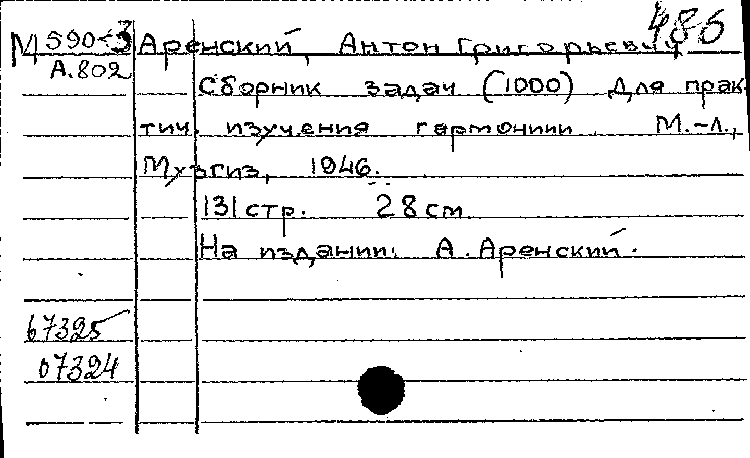 486
М 590-3 Аренский, Антон Григорьевич
А.802
Сборник задач (1000) для прак-
тич. изучения гармонии. М.-Л.,
Музгиз, 1946.
131 стр. 28 см
На издании: А. Аренский.
67325
07324